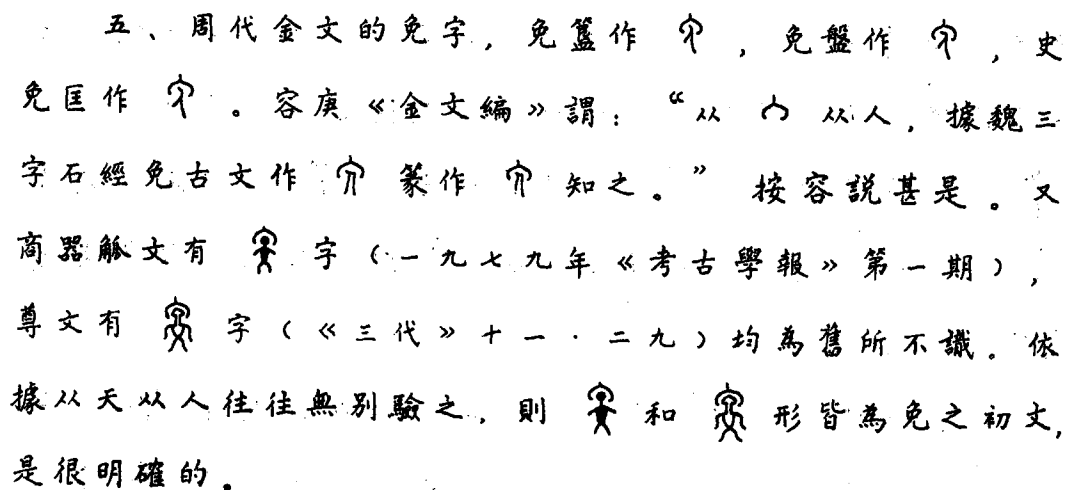 五、周代金文的免字，免簠作，免盤作，史
免匡作。容庚《金文編》謂：“从从人，據魏三
字石經免古文作篆作知之。”按容説甚是。又
商器觚文有字（一九七九年《考古學報》第一期），
尊文有字（《三代》十一·二九）均為舊所不識。依
據从天从人往往無別驗之，則和形皆為免之初文，
是很明確的。